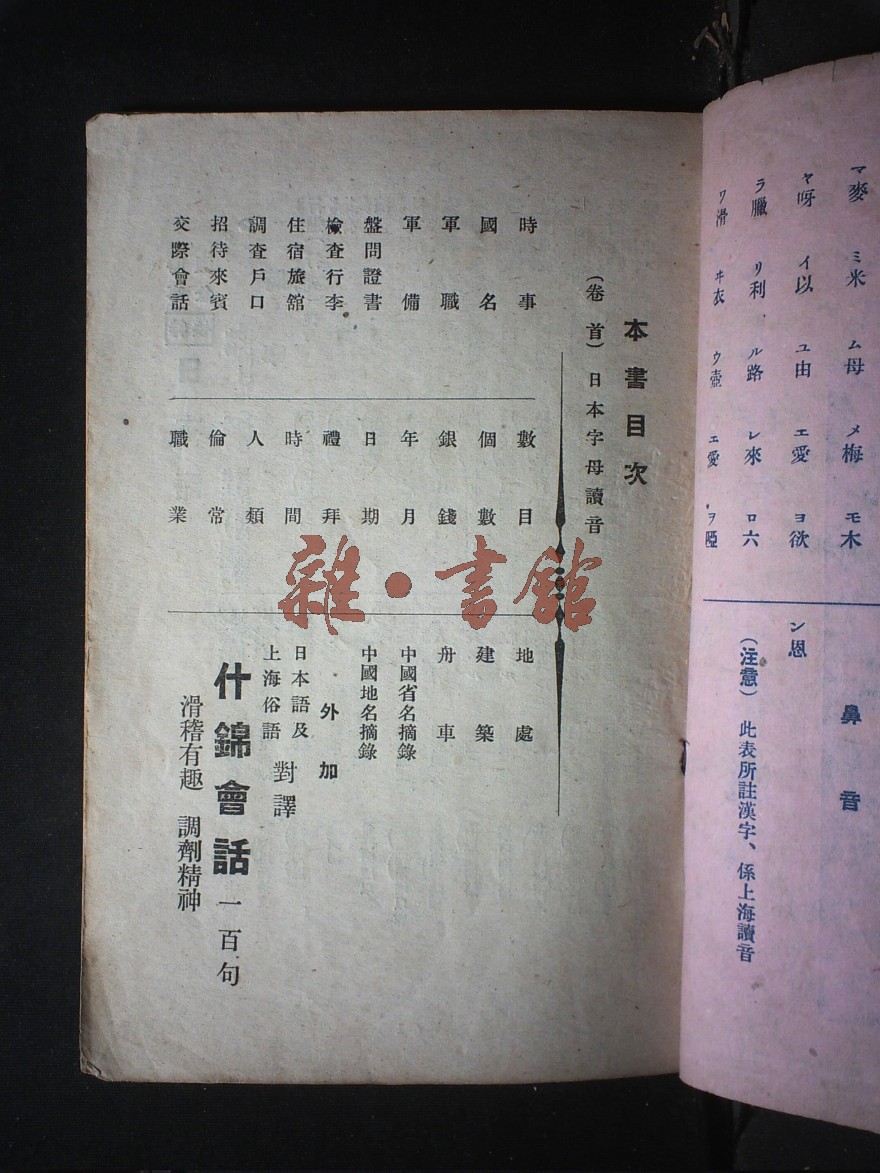 マ麥 ミ米 ム母 メ梅 モ木
ヤ呀 イ以 ユ由 エ愛 ヨ欲
ラ臘 リ利 ル路 レ來 ロ六
ワ滑 ヰ衣 ウ壺 エ愛 ヲ啞
鼻音
ン恩
(注意) 此表所註漢字、係上海讀音
本書目次
(卷首)日本字母讀音
時事
國名
軍職
軍備
盤問證書
檢查行李
住宿旅舘
調查戶口
招待來賓
交際會話
數目
個數
銀錢
年月
日期
禮拜
時間
人類
倫常
職業
地處
建築
舟車
中國省名摘錄
中國地名摘錄
外加
日本語及
上海俗語
對譯
什錦會話一百句
滑稽有趣 調劑精神
雜·書館